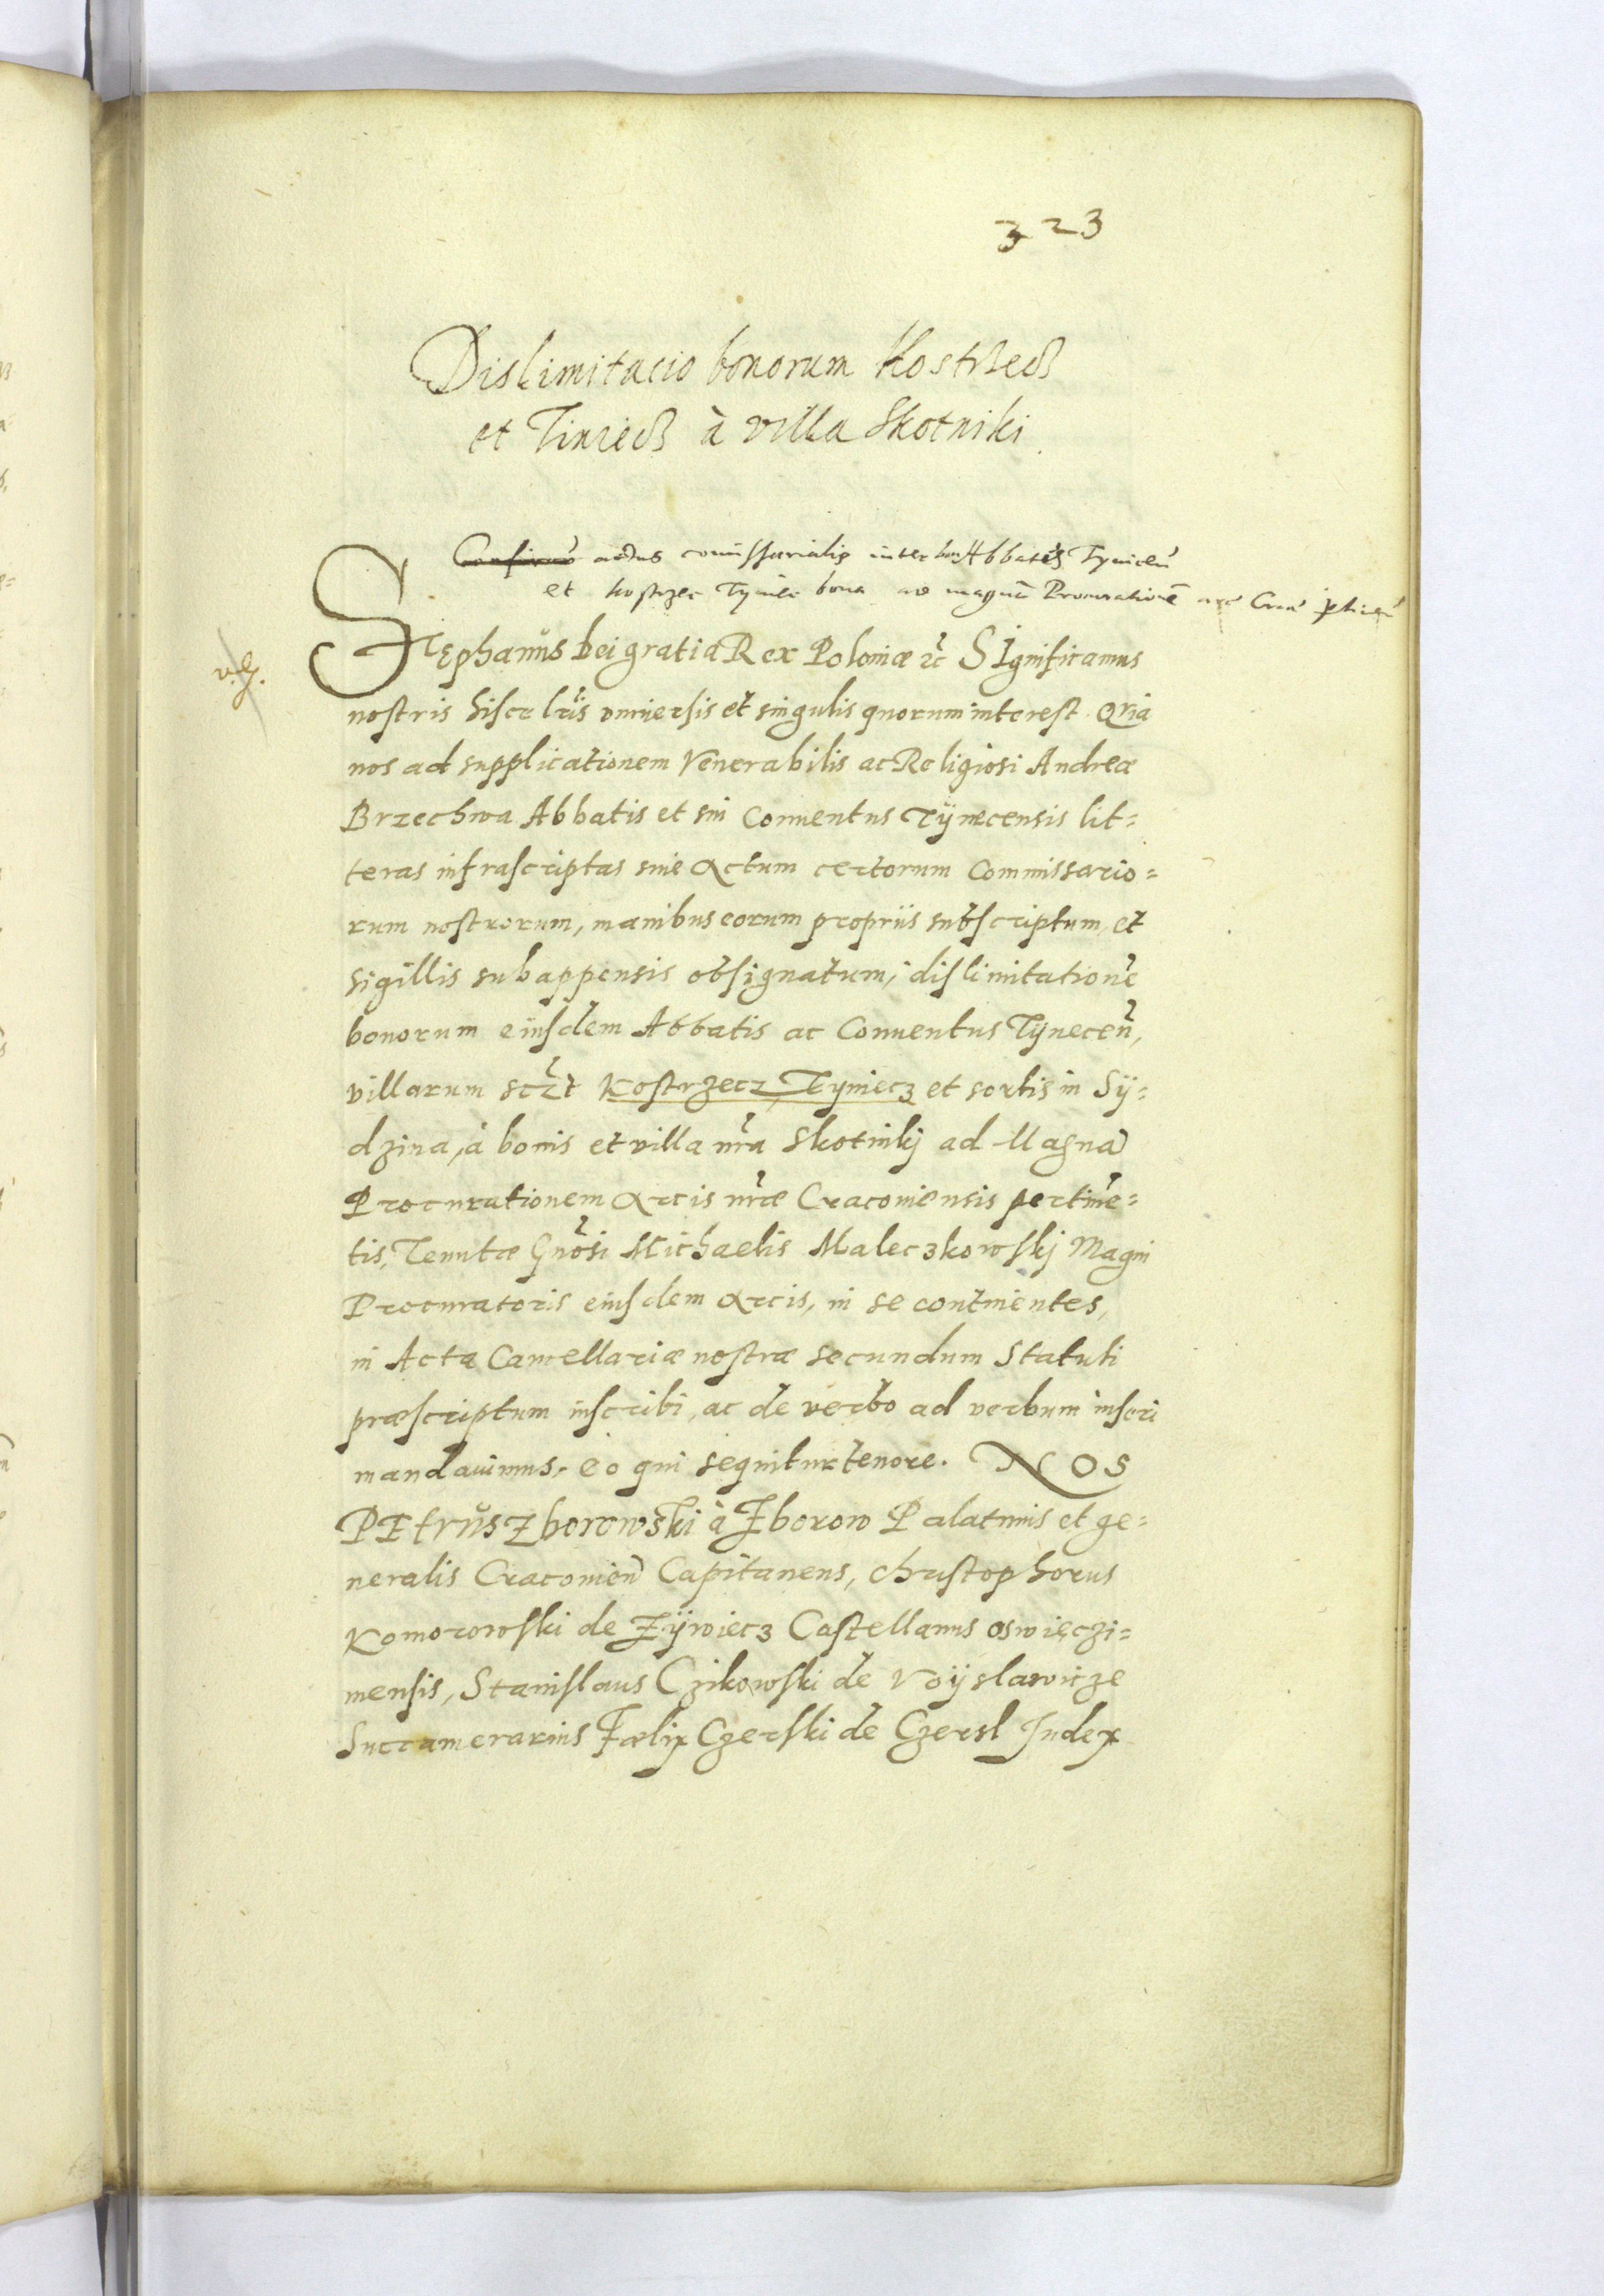 323
Dislimitacio bonorum Kostrzecz
et Tiniecz à villa Skotniki
actus comissarialis inter Abbates Tynicen̄
et Kostrzec Tyniec bona ad magnā Procurationē arc Crac
Stephanus Dei gratia Rex Poloniæ &c̃ SIgnificamus
nostris hisce lr̃is vniuersis et singulis quorum interest. Qvia
nos ad supplicationem Venerabilis ac Religiosi Andreæ
Brzechwa Abbatis et sui Conuentus Tÿnecensis lit=
teras infrascriptas siue Actum certorum Commissario=
rum nostrorum, manibus eorum proprijs subscriptum, et
sigillis subappensis obsignatum, dislimitationẽ
bonorum eiusdem Abbatis ac Conuentus Tÿnecen̄,
villarum sczt̃ Kostrzecz, Tyniecz et sortis in Sÿ=
dzina, à bonis et villa nr̃a Skotniki ad Magnā
Procurationem Arcis nr̃æ Cracouiensis pertinē=
tis, Tenutæ Gn̄osi Michaelis Maleczkowskj Magni
Procuratoris eiusdem Arcis, in se continentes,
in Acta Cancellariæ nostræ secundum Statuti
præscriptum inscribi, ac de verbo ad verbum inseri
mandauimus, eo qui sequitur tenore. NOS
PEtrus Zborowski à Zborow Palatinus et ge=
neralis Cracouien̄ Capitaneus, Christophorus
Komorowski de Zÿwiecz Castellanus oswięczi=
mensis, Stanislaus Czikowski de Voÿslawicze
Succamerarius Fælix Czerski de Czersl Iudex